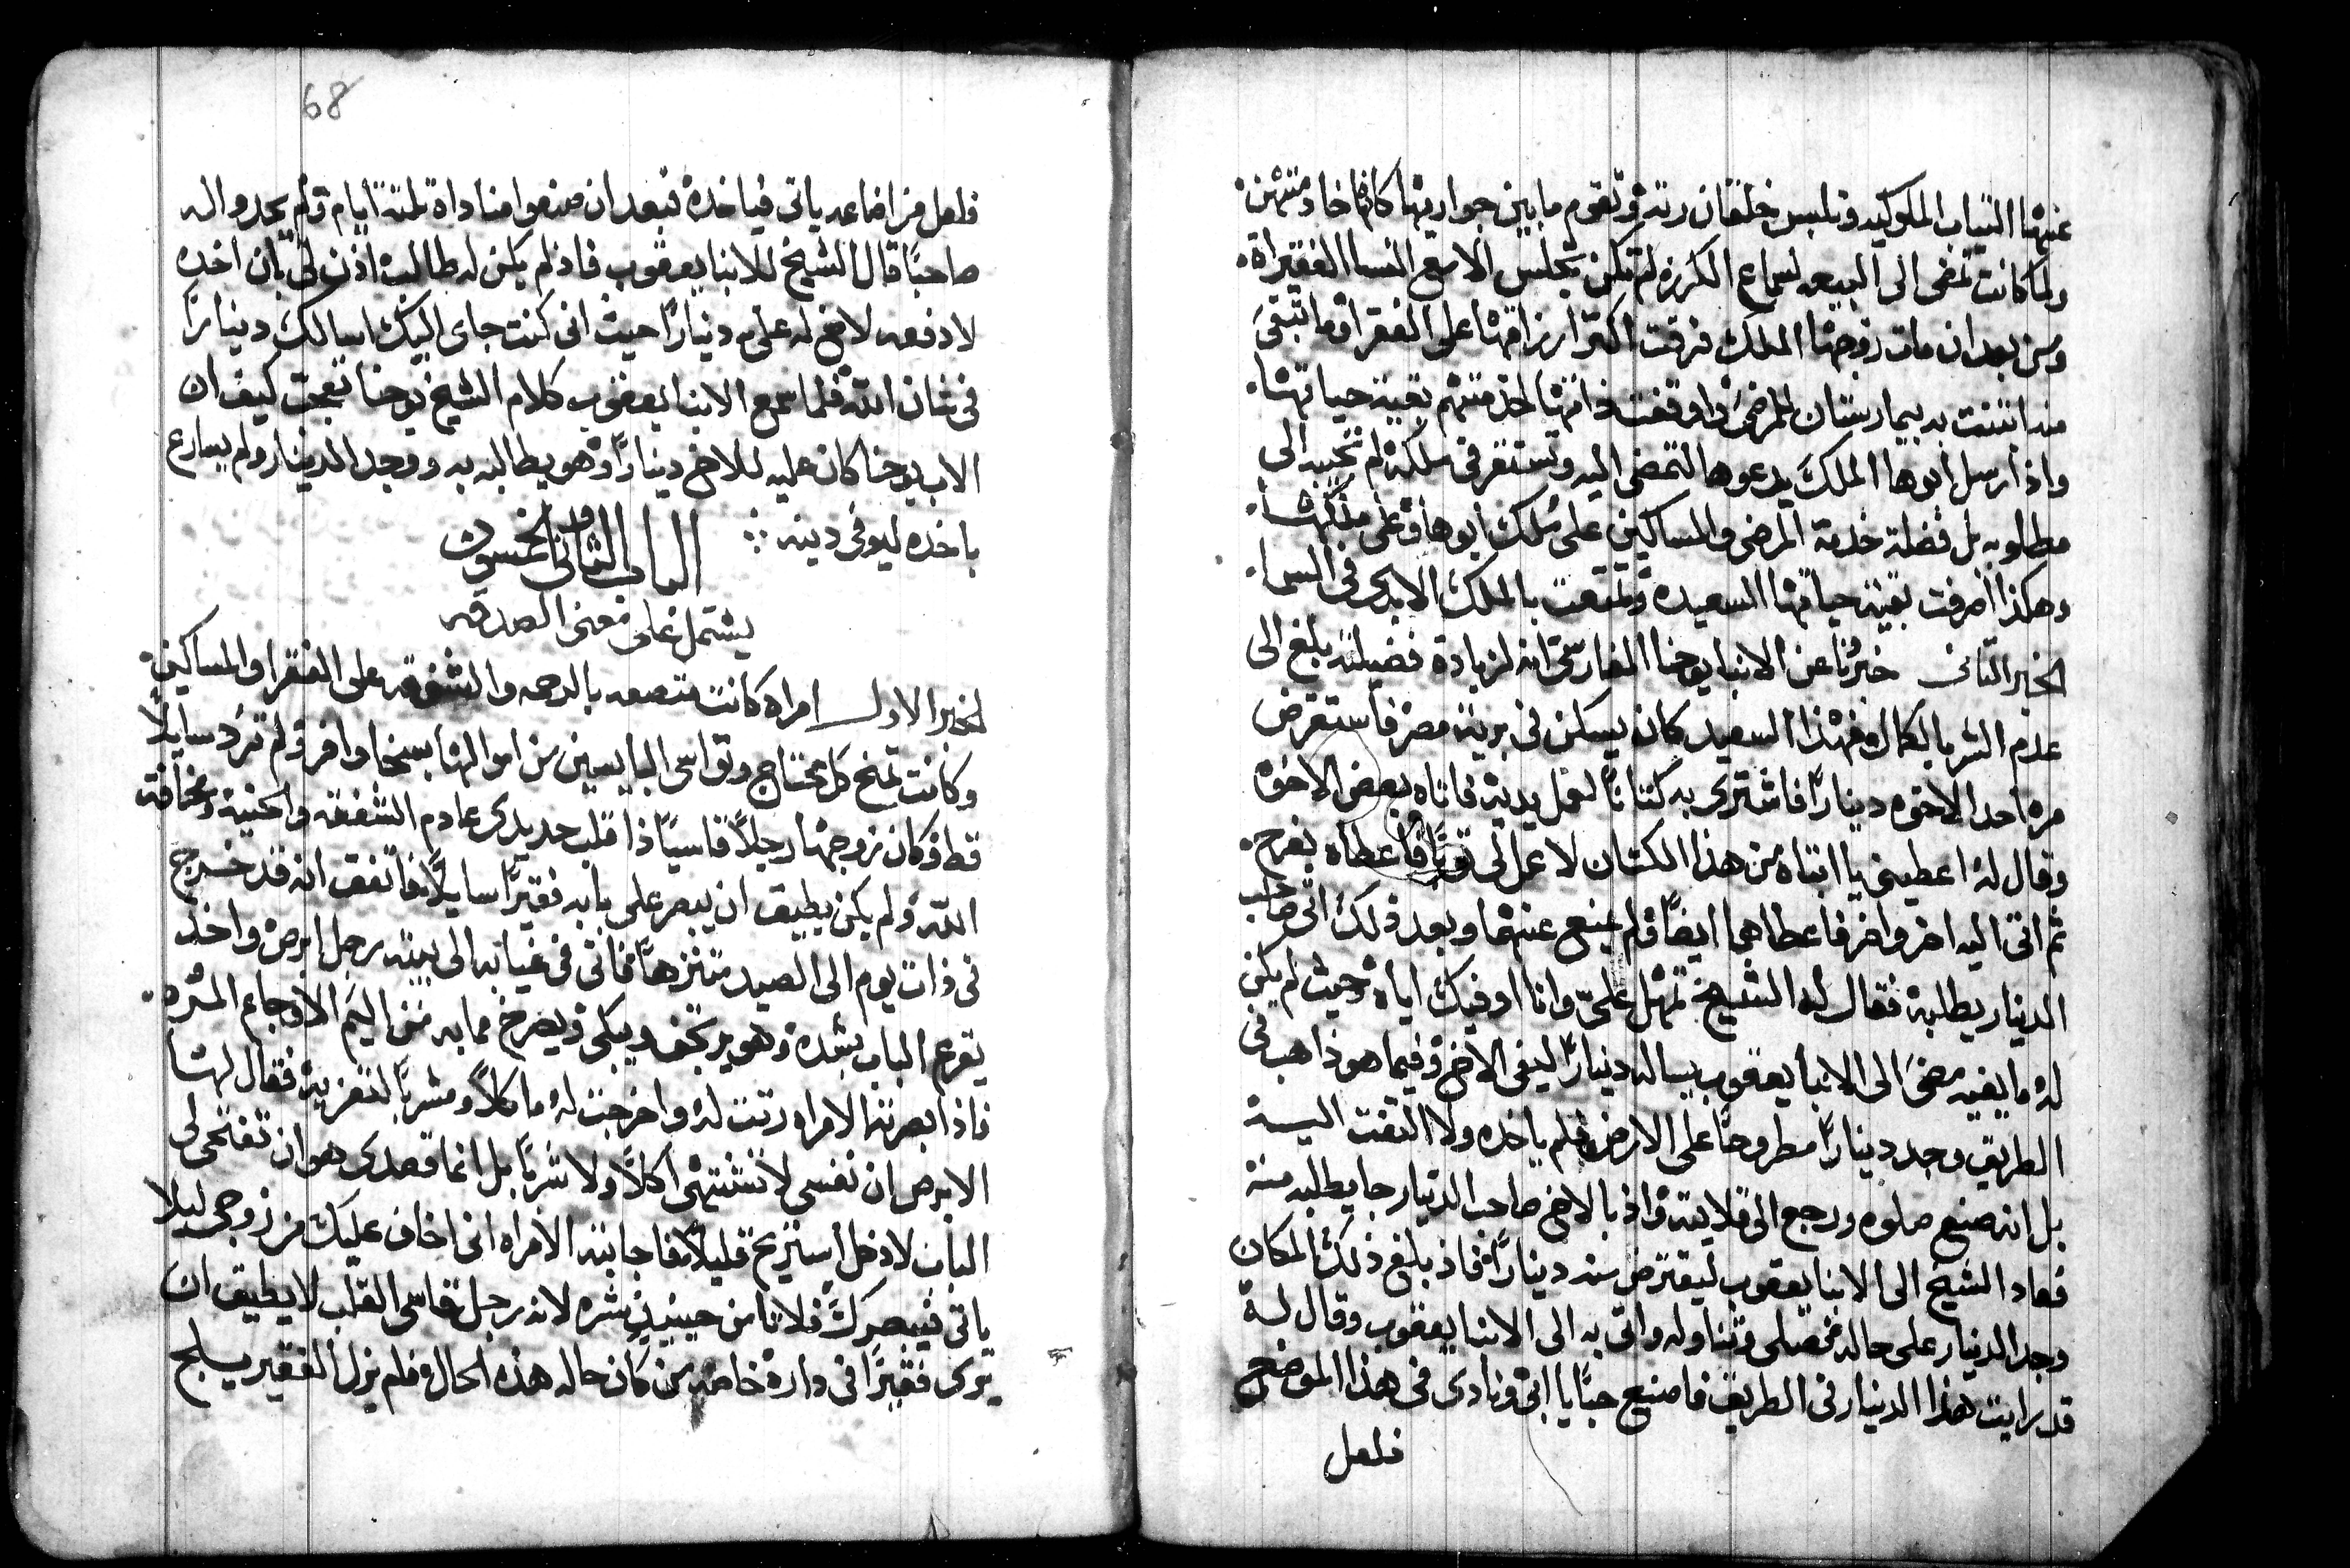 عنها الثياب الملوكيه وتلبس خلقان رثه وتقوم ما بين جواريها كانها خادمتهن
ولما كانت تمضي الى البيعه لسماع الكرزه لم تكن تجلس الا مع النسا الفقيراة
ومن بعد ان مات زوجها الملك فرقت اكثر ارزاقها على الفقرا وما تبقى
منه ابتنت به بيمارستان للمرضى واوقفت ذاتها لخدمتهم بقية حياتها
واذ ارسل ابوها الملك يدعوها لتمضي اليه وتستقر في ملكه لم تجيبه الى
مطلوبه بل فضلة خدمة المرضى والمساكين على ملك ابوها وعلى ملكها
وهكذا اصرفت بقية حياتها السعيده وتمتعت بالملك الابدي في السما
الخبر الثاني خبرنا عن الانبا يوحنا الفارسي انه لزيادة فضيلته بلغ الى
عدم الشر بالكمال فهذا السعيد كان يسكن في برية مصر فاستقرض
مره احد الاخوه دينارًا فاشترى به كتانًا لعمل يديه فاتاه بعض الاخوه
وقال له اعطيني يا ابتاه من هذا الكتان لاعمل لي ثوبًا فاعطاه بفرح
ثم اتى اليه اخر واخر فاعطاهما ايضًا ولم يمنع عنهما وبعد ذلك اتى صاحب
الدينار يطلبه فقال له الشيخ تمهل علي وانا اوفيك اياه وحيث لم يكن
له ما يفيه مضى الى الانبا يعقوب يساله دينارًا ليفي الاخ وفيما هو ذاهب في
الطريق وجد دينارًا مطروحًا على الارض فلم ياخذه ولا التفت اليه
بل انه صنع صلوه ورجع الى قلايته واذ بالاخ صاحب الدينار جا يطلبه منه
فعاد الشيخ الى الانبا يعقوب ليقترض منه دينارًا فاذ بلغ ذلك المكان
وجد الدينار على حاله فصلى وتناوله واتى به الى الانبا يعقوب وقال له
قد رايت هذا الدينار في الطريق فاصنع حبًا يا ابي ونادي في هذا الموضع
فلعل
68
فلعل من اضاعه ياتي فياخذه فبعد ان صنعوا مناداة ثلثة ايام ولم يجدوا له
صاحبًا قال الشيخ للانبا يعقوب فاذ لم يكن له طالب اذن لي بان اخذه
لادفعه لاخ له علي دينارًا حيث اني كنت جاي اليك اسالك دينارًا
في شان الله فلما سمع الانبا يعقوب كلام الشيخ يوحنا تعجب كيف ان
الاب يوحنا كان عليه للاخ دينارًا وهو يطالبه به ووجد الدينار ولم يسارع
ياخذه ليوفي دينه
الباب الثاني والخمسون
يشتمل على معنى الصدقه
الخبر الاول امراه كانت متصفه بالرحمه والشفقه على الفقرا والمساكين
وكانت تمنح كل محتاج وتواسي البايسين من اموالها بسخا وافر ولم ترد سايلًا
قط وكان زوجها رجلًا قاسيًا ذا قلب حديدي عادم الشفقه والحنيه ومخافة
الله ولم يكن يطيق ان يبصر على بابه فقيرًا سايلًا فاتفق انه قد خرج
في ذات يوم الى الصيد متنزهًا فاتى في غيابه الى بيته رجل ابرص واخذ
يقرع الباب بشده وهو يرتجف ويبكي ويصرخ مما به من اليم الاوجاع المره
فاذ ابصرته الامراه رتت له واخرجت له ماكلًا ومشربًا لتعزيه فقال لها
الابرص ان نفسي لا تشتهي اكلًا ولا شربًا بل انما قصدي هو ان تفتحي لي
الباب لادخل استريح قليلًا فاجابته الامراه اني اخاف عليك من زوجي ليلا
ياتي فيبصرك فلا نامن حينيذٍ شره لانه رجل قاسي القلب لا يطيق ان
يرى فقيرًا في داره خاصه من كان حاله هذه الحال فلم يزل الفقير يسلج